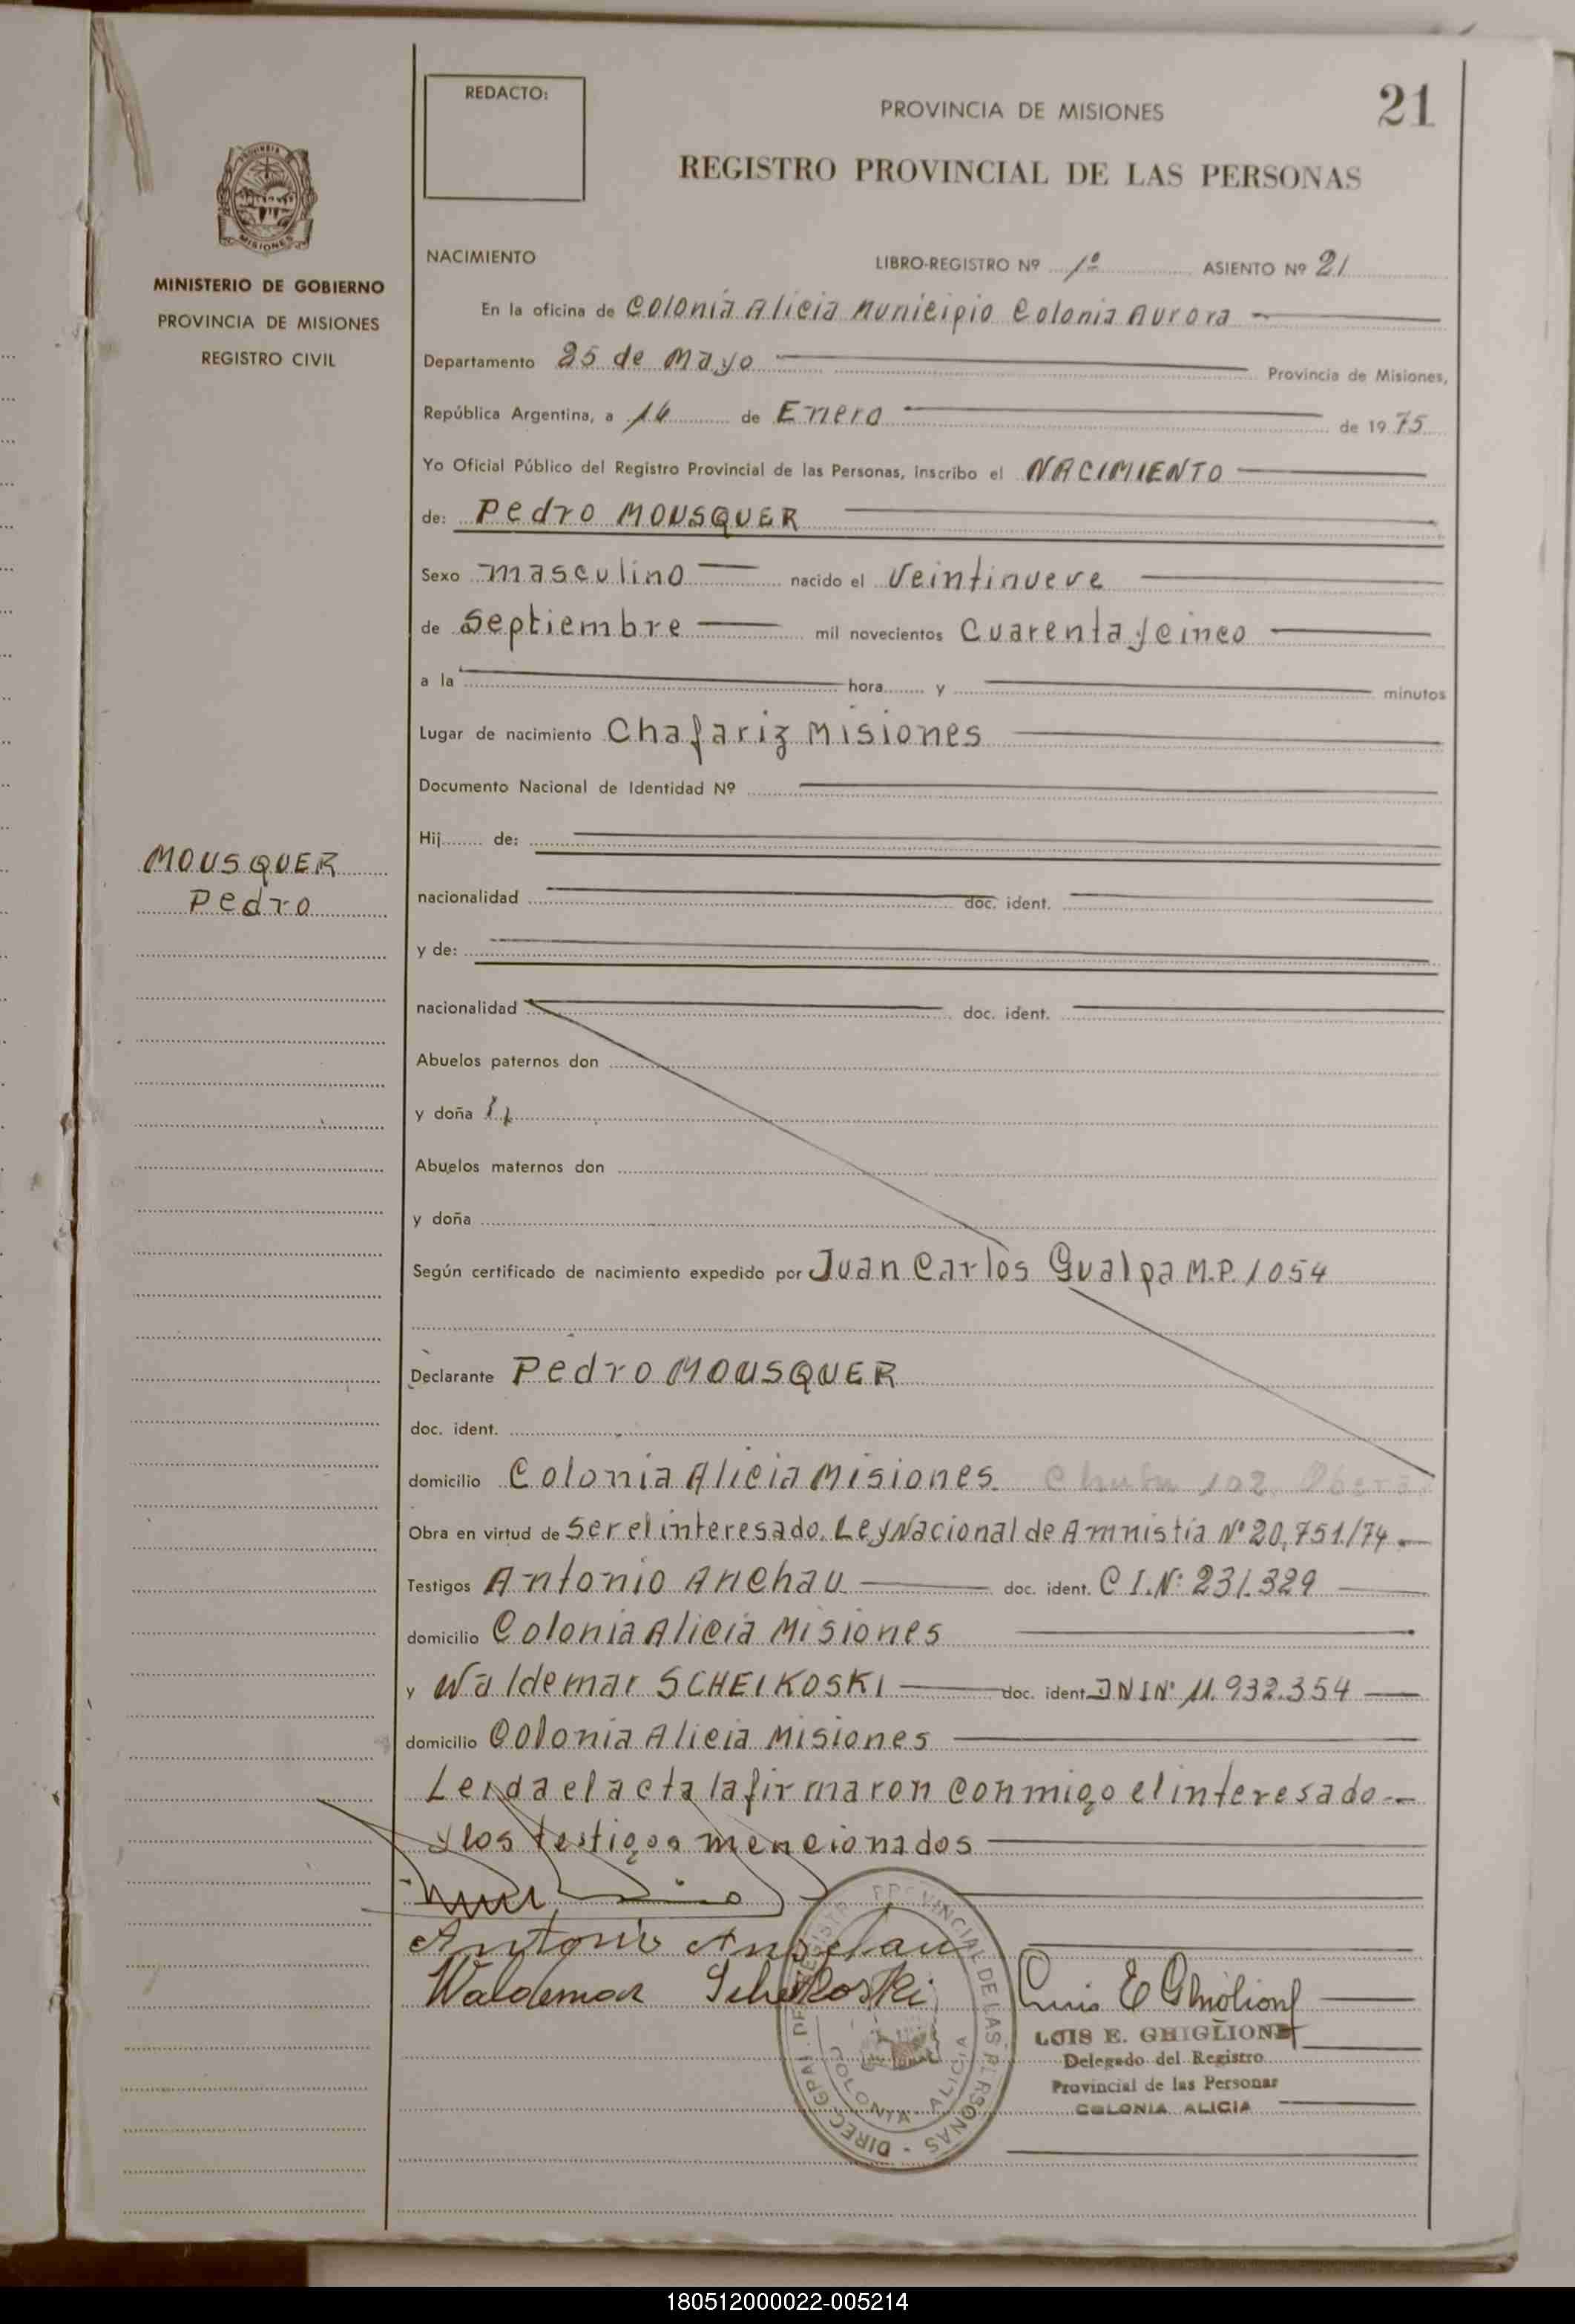 21
REDACTO:
PROVINCIA DE MISIONES
REGISTRO PROVINCIAL DE LAS PERSONAS
MISIONES
MINISTERIO DE GOBIERNO
PROVINCIA DE MISIONES
REGISTRO CIVIL
NACIMIENTO LIBRO-REGISTRO Nº 1º ASIENTO Nº 21
En la oficina de Colonia Alicia Municipio Colonia Aurora
Departamento 25 de Mayo Provincia de Misiones,
República Argentina, a de Enero de 1975
Yo Oficial Público del Registro Provincial de las Personas, inscribo el NACIMIENTO
de: Pedro MOUSQUER
Sexo masculino nacido el Veintinueve
de Septiembre mil novecientos Cuarenta y cinco
a la hora y minutos
Lugar de nacimiento Chafariz Misiones
Documento Nacional de Identidad Nº
Hij de:
MOUSQUER
Pedro
nacionalidad doc. ident.
y de:
nacionalidad doc. ident.
Abuelos paternos don
y doña
Abuelos maternos don
y doña
Según certificado de nacimiento expedido por Juan Carlos Gualpa M.P. 1054
Declarante Pedro MOUSQUER
doc. ident.
domicilio Colonia Alicia Misiones. 102
Obra en virtud de Ser el interesado. Ley Nacional de Amnistia Nº 20.751./74
Testigos Antonio Anchau doc. ident. C I.Nº 231.329
domicilio Colonia Alicia Misiones
y Waldemar SCHEIKOSKI doc. ident DNI Nº 11.932.354
domicilio Colonia Alicia Misiones
Leida el acta la firmaron conmigo el interesado
y los testigos mencionados
Antonio
Waldemar
Luis E Ghiglione
LUIS E. GHIGLIONE
Delegado del Registro
Provincial de las Personas
COLONIA ALICIA
DIREC. GRAL. DE REGISTRO PROVINCIAL DE LAS PERSONAS
COLONIA ALICIA
180512000022-005214